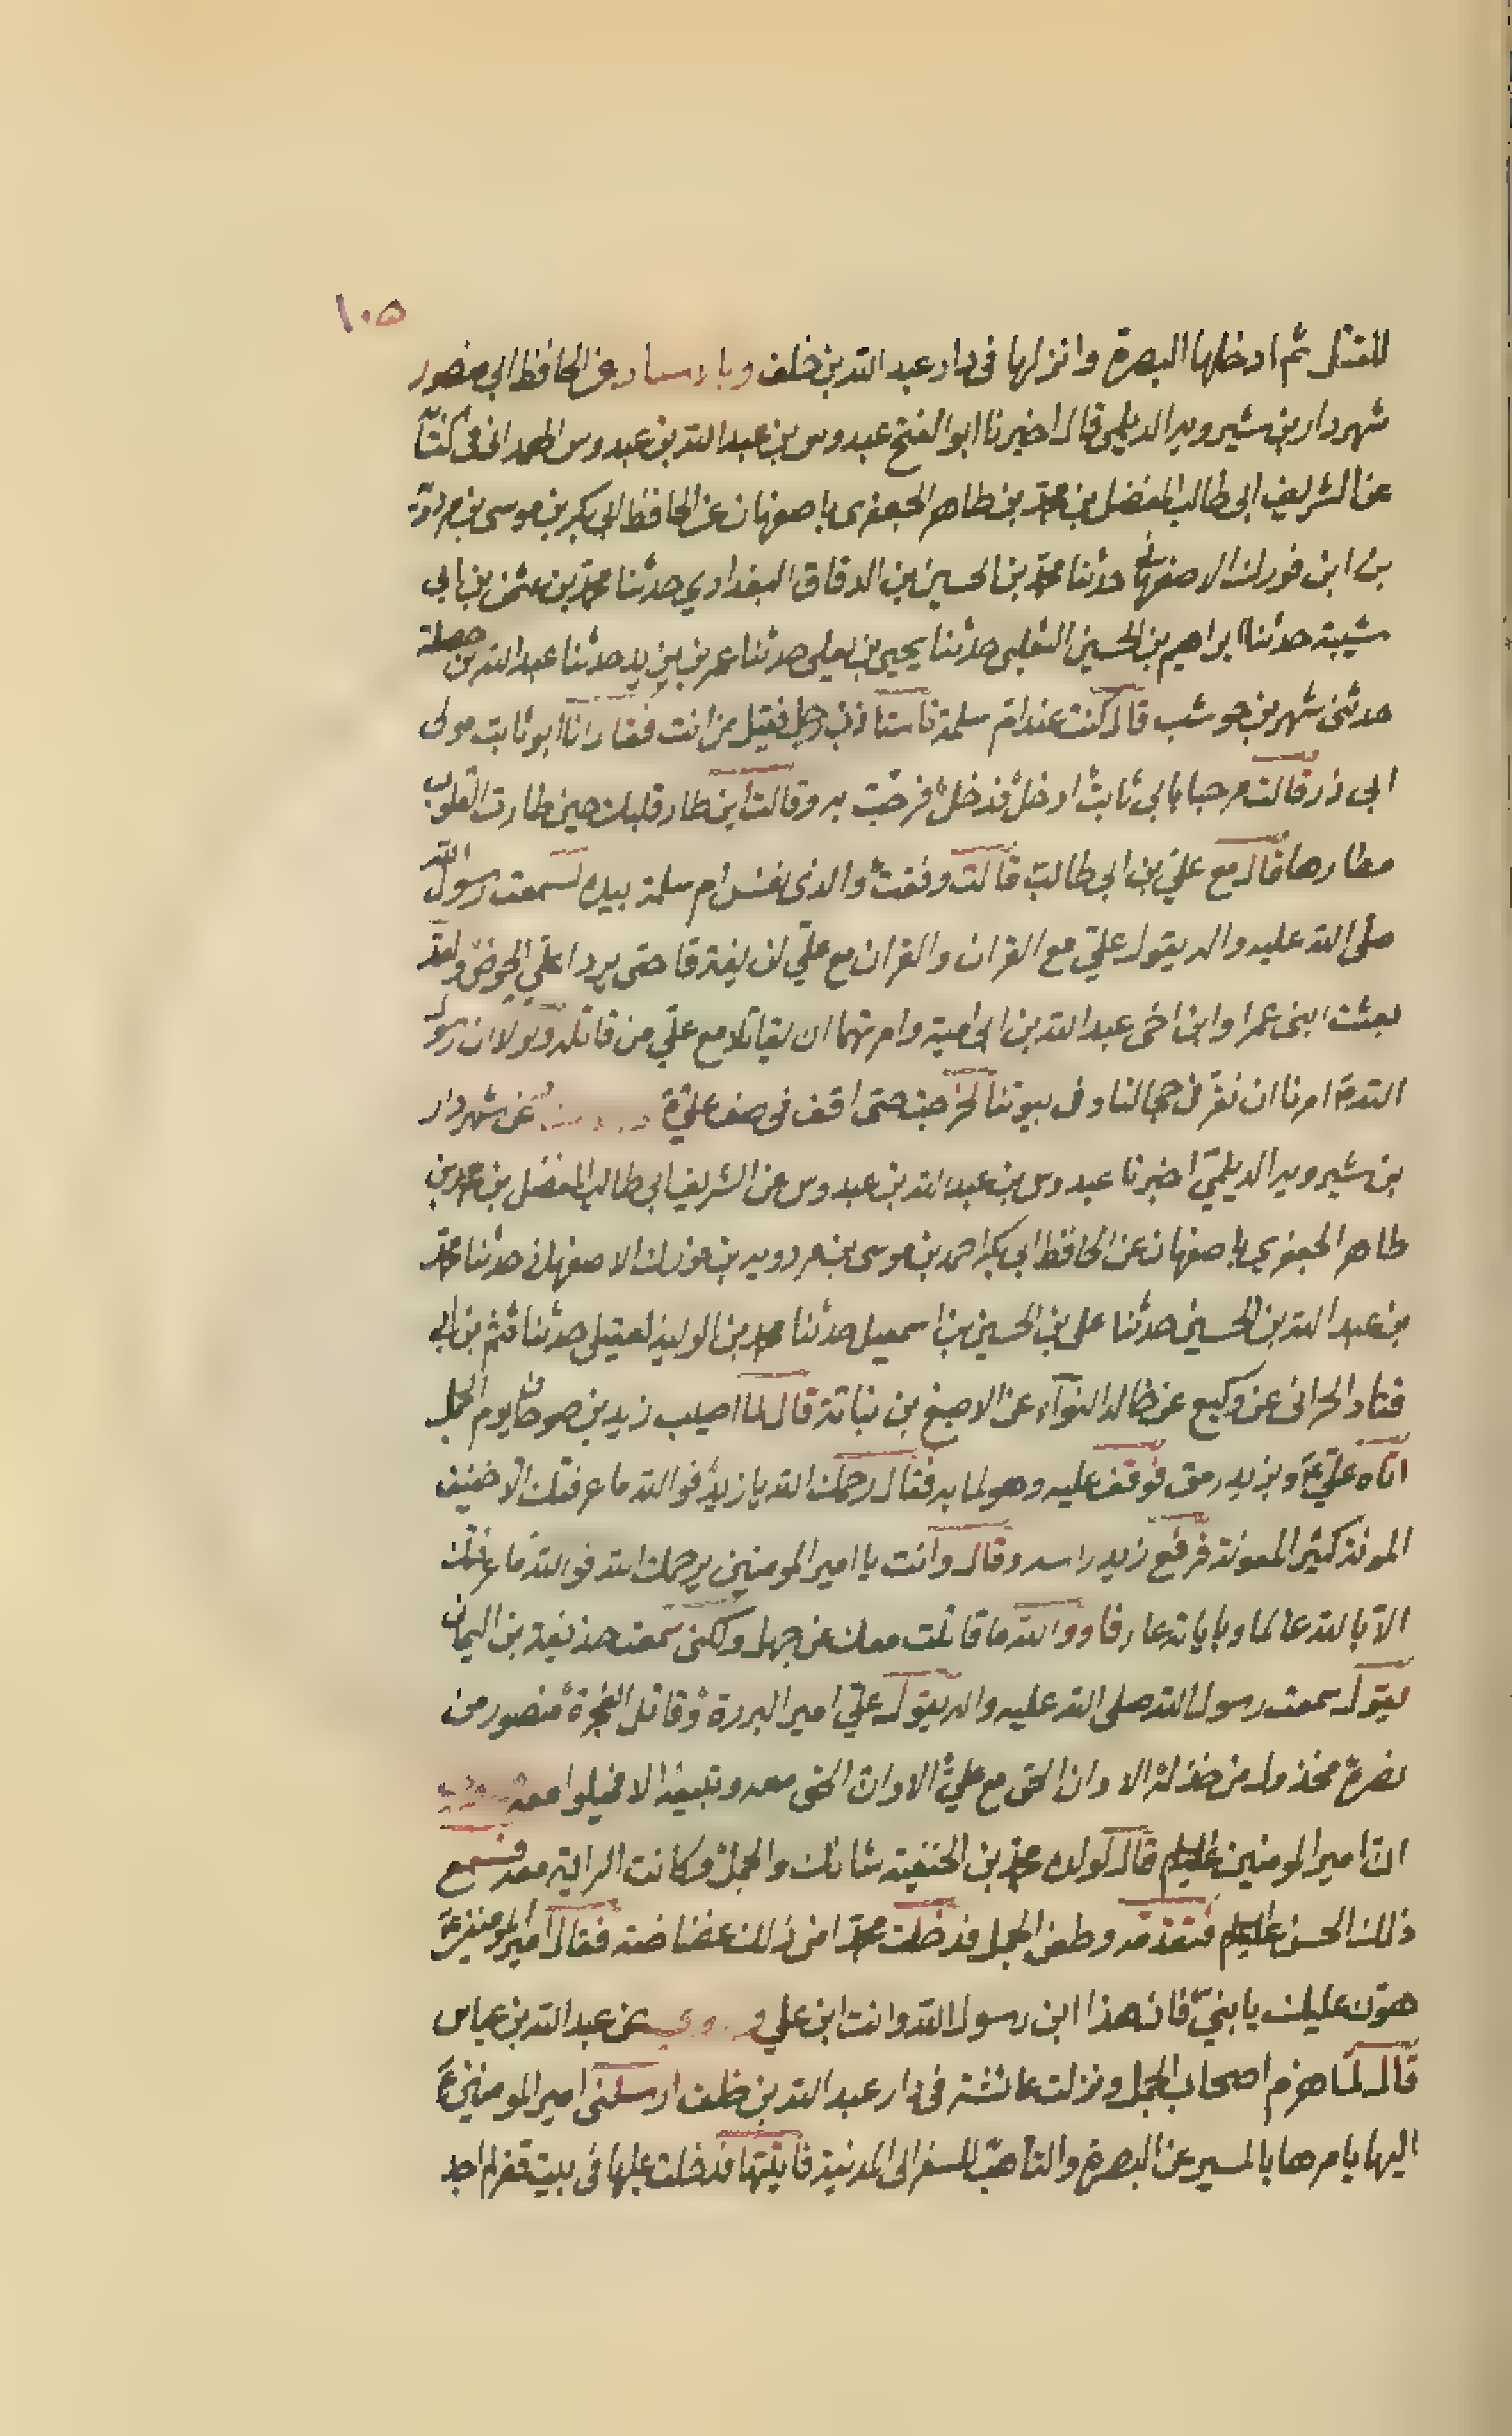 ١٠٥
للقتل ثم ادخلها البصرة وانزلها فى دار عبد الله بن خلف وبالاسناد عن الحافظ ابى منصور
شهردار بن شيرويه الديلمى قال اخبرنا ابو الفتح عبدوس بن عبد الله بن عبدوس الهمدانى فى كتابه
عن الشريف ابى طالب المفضل بن محمد بن طاهر الجعفرى باصفهان عن الحافظ ابى بكر بن موسى بن مردويه
بن ابن فورك الاصفهانى حدثنا محمد بن الحسين بن الدقاق البغدادي حدثنا محمد بن عثمن بن ابى
شيبة حدثنا ابراهيم بن الحسين التغلبى حدثنا يحيى بن يعلى حدثنا عمر بن يزيد حدثنا عبد الله بن حنظلة
حدثنى شهر بن حوشب قال كنت عند ام سلمة فاستاذن رجل فقيل من انت فقال انا ابو ثابت مولى
ابى ذر قالت مرحبا بابى ثابت ادخل فدخل فرحبت به وقالت اين طار قلبك حين طارت القلوب
مطارها قال مع علي بن ابى طالب قالت وفقت والذى نفس ام سلمة بيده لسمعت رسول الله
صلى الله عليه واله يقول علي مع القران والقران مع علي لن يفترقا حتى يردا علي الحوض ولقد
بعثت ابنى عمرا وابن اخى عبد الله بن ابى امية وامرتهما ان يقاتلا مع علي من قاتله ولولا ان رسول
الله ص امرنا ان نقر فى حجالنا وفى بيوتنا لخرجت حتى اقف فى صف علي ع عن شهردار
بن شيرويه الديلمي اخبرنا عبدوس بن عبد الله بن عبدوس عن الشريف ابى طالب المفضل بن محمد بن
طاهر الجعفري باصفهان عن الحافظ ابى بكر احمد بن موسى بن مردويه بن فورك الاصفهانى حدثنا محمد
بن عبد الله بن الحسين حدثنا على بن الحسين بن اسمعيل حدثنا محمد بن الوليد العقيلى حدثنا قثم بن ابى
قتادة الحرانى عن وكيع عن خالد النوآء عن الاصبغ بن نباتة قال لما اصيب زيد بن صوحان يوم الجمل
اتاه علي ع وبزيد رمق فوقف عليه وهو لما به فقال رحمك الله يا زيد فوالله ما عرفتك الا خفيف
المونة كثير المعونة فرفع زيد راسه وقال وانت يا امير المومنين يرحمك الله فوالله ما عرفتك
الا بالله عالما وباياته عارفا ووالله ما قاتلت معك عن جهل ولكنى سمعت حذيفة بن اليمان
يقول سمعت رسول الله صلى الله عليه واله يقول علي امير البررة وقاتل الفجرة منصور من
نصره مخذول من خذله الا وان الحق مع علي الا وان الحق معه وتبيعه الا فميلوا معه
ان امير المومنين عليه السلم قال لولده محمد بن الحنفية شانك والجمل وكانت الراية معه فسمع
ذلك الحسن عليه السلم فتقدمه وطعن الجمل فدخلت محمدا من ذلك غضاضة فقال امير المومنين ع
هون عليك يا بني فان هذا ابن رسول الله وانت ابن علي عن عبد الله بن عباس
قال لما هزم اصحاب الجمل ونزلت عائشة فى دار عبد الله بن خلف ارسلنى امير المومنين ع
اليها يامرها بالمسير عن البصرة والتاهب للسفر الى المدينة فاتيتها فدخلت عليها فى بيت قفر لم اجد